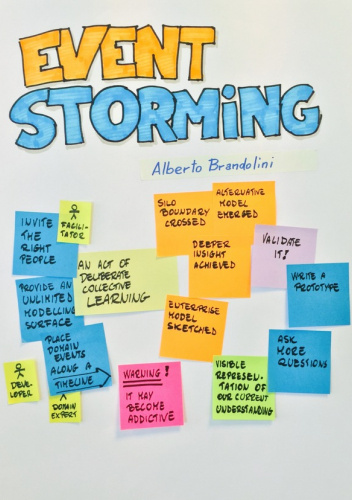 EVENT
STORMiNG
Alberto Brandolini
INVITE
THE
RIGHT
PEOPLE
FACILI-
TATOR
PROVIDE AN
UNLIMITED
MODELLING
SURFACE
AN ACT OF
DELIBERATE
COLLECTIVE
LEARNING
PLACE
DOMAIN
EVENTS
ALONG A
TIMELINE
DEVE-
LOPER
DOMAIN
EXPERT
SILO
BOUNDARY
CROSSED
ALTERNATIVE
MODEL
EMERGED
DEEPER
INSIGHT
ACHIEVED
ENTERPRISE
MODEL
SKETCHED
VALIDATE
IT!
WRITE A
PROTOTYPE
ASK
MORE
QUESTIONS
WARNING!
IT MAY
BECOME
ADDICTIVE
VISIBLE
REPRESEN-
TATION OF
OUR CURRENT
UNDERSTANDING